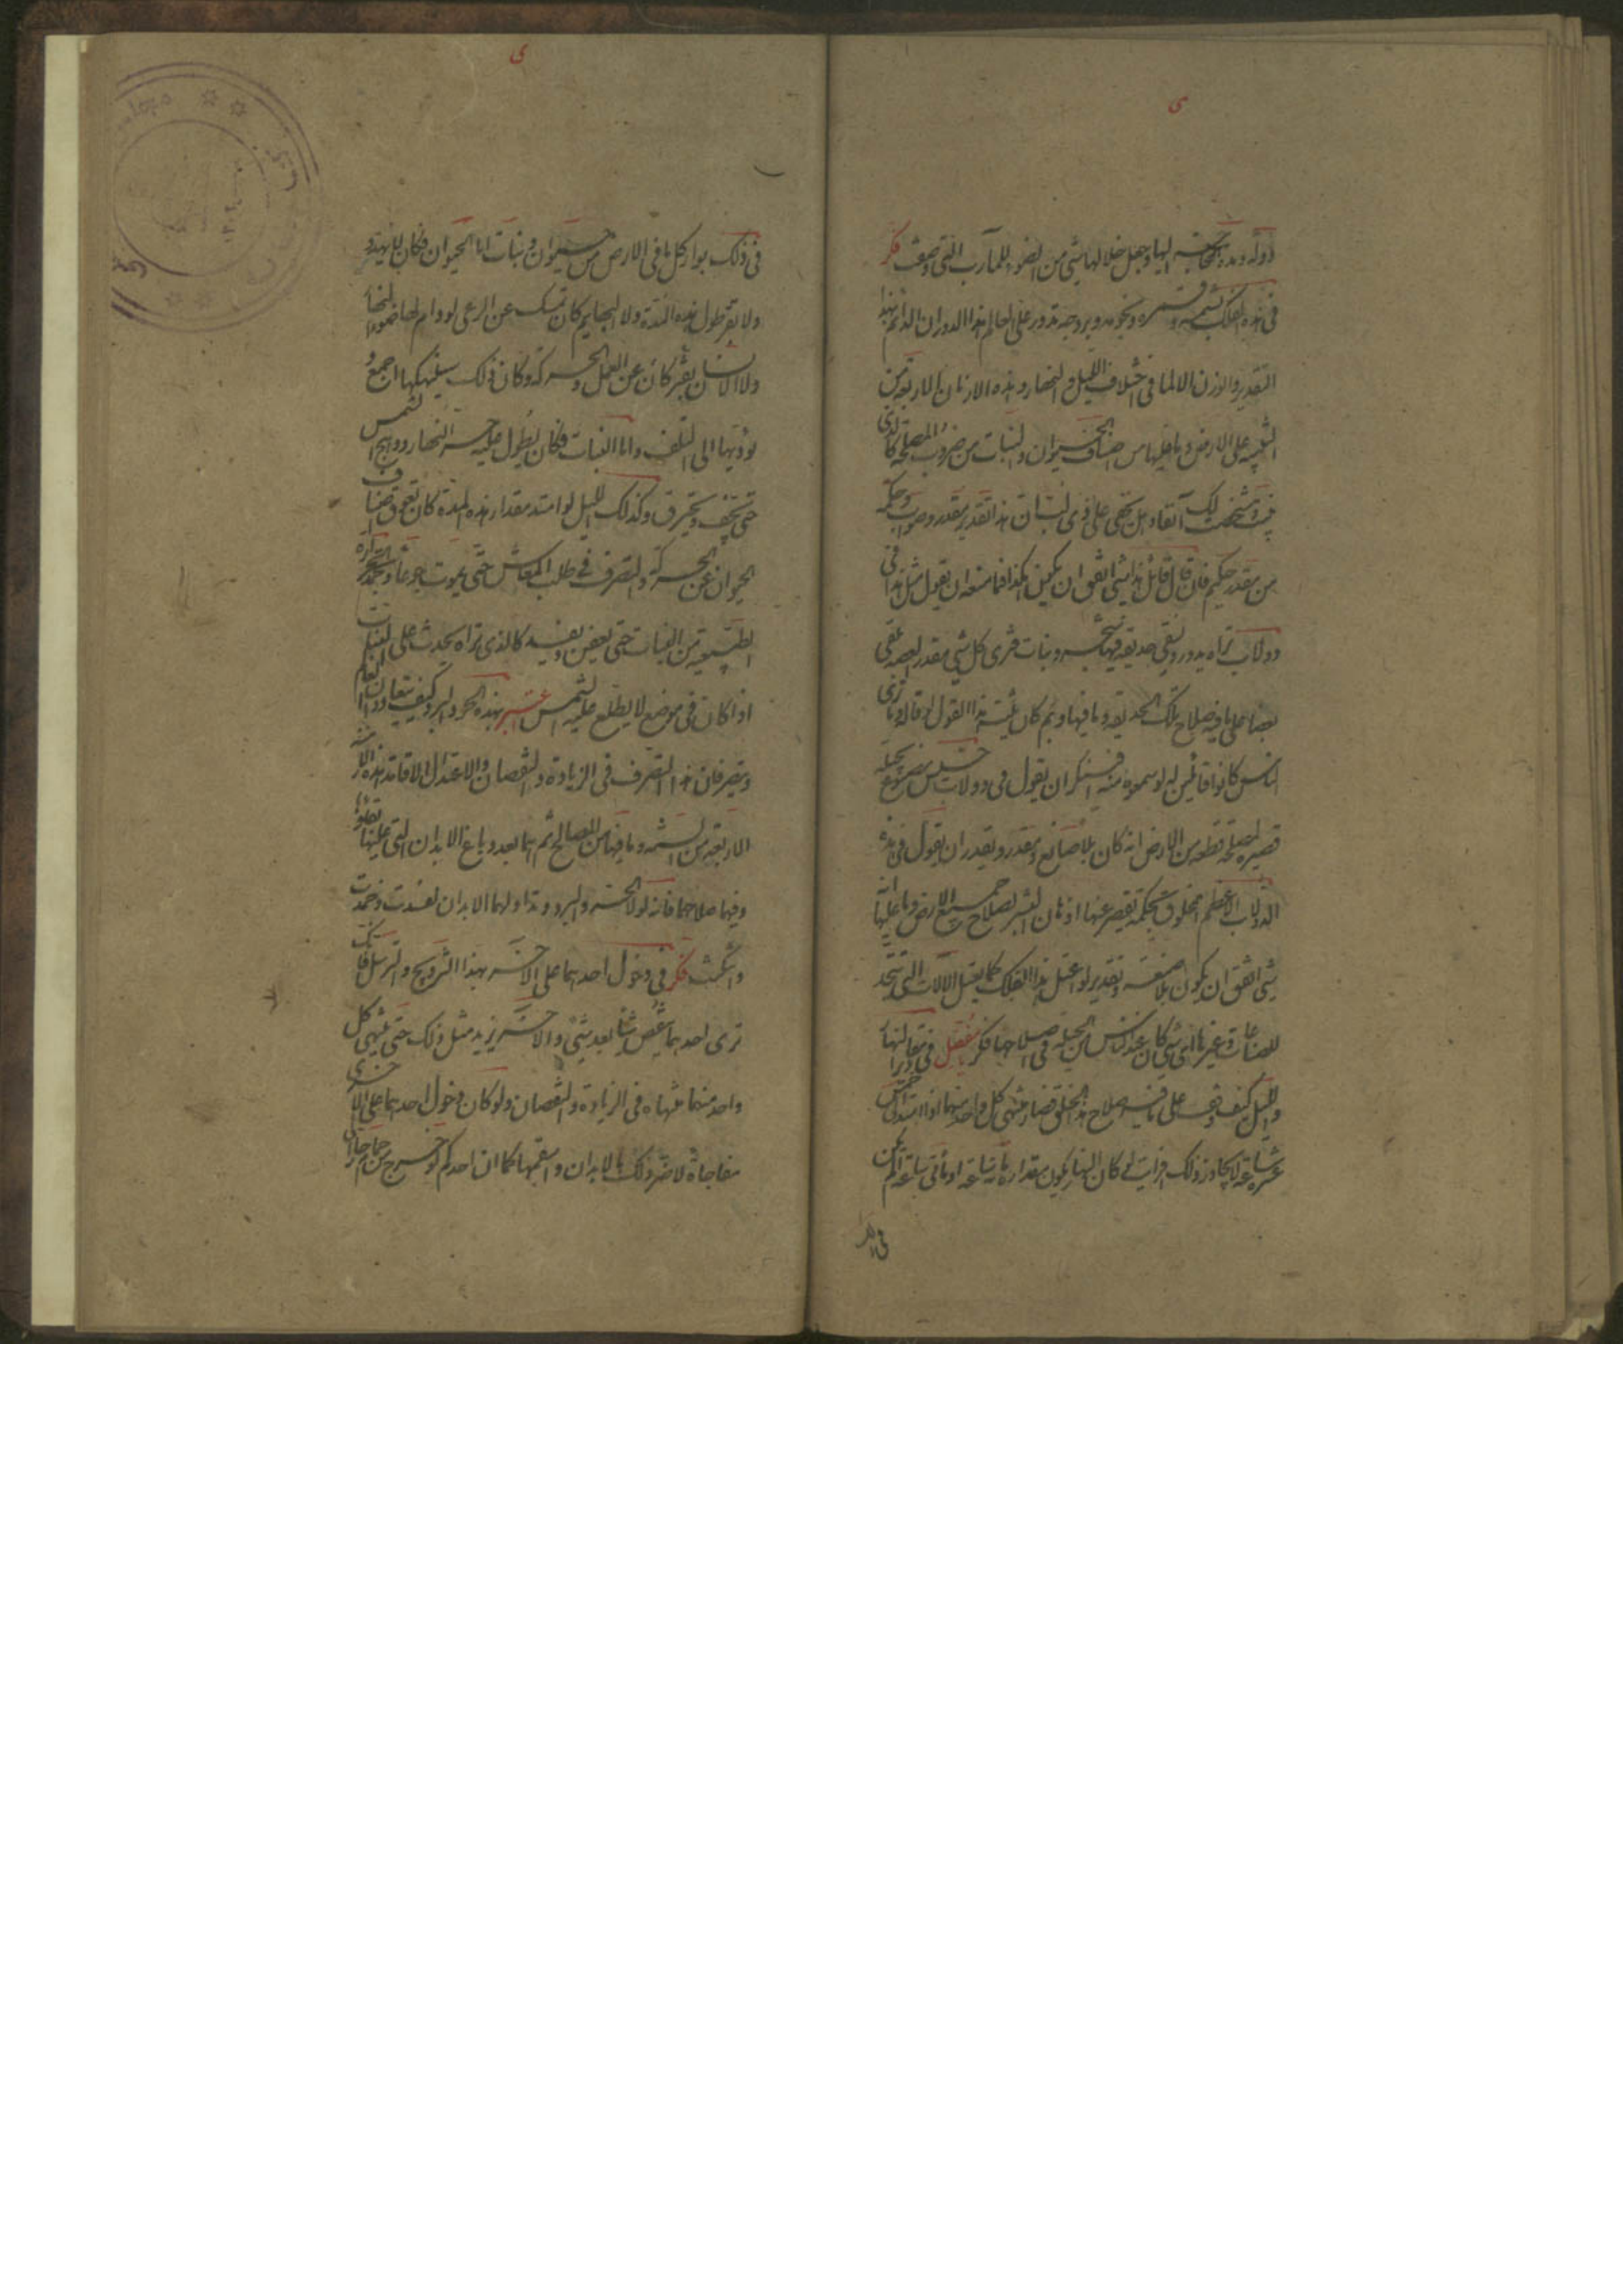 دولة ومدة للحاجة اليها وجعل خلالها شئ من الضوء للمآرب التي وصف فكر
في هذه الفلك بشمسه وقمره ونجومه وبروجه تدور على العالم هذا الدوران الدائم بهذا
التقدير والوزن لما في اختلاف الليل والنهار وهذه الازمان الاربعة من
التنبيه على الارض وما عليها من اصناف الحيوان والنبات من ضروب المصلحة كالذي
بينت وشخصت لك آنفا وهل يخفى على ذي لب ان هذا تقدير مقدر وصواب وحكمة
من مقدر حكيم فان قال قائل هذا شئ اتفق ان يكون هكذا فما منعه ان يقول مثل هذا في
دولاب تراه يدور ويسقى حديقة فيها شجر ونبات فترى كل شئ مقدر بعضه يلقى
بعضا على ما فيه صلاح تلك الحديقة وما فيها وبم كان يثبت هذا القول لو قاله وما ترى
الناس كانوا قائلين له لو سمعوه منه فينكر ان يقول في دولاب خسيس مصنوع بحيلة
قصيرة لمصلحة قطعة من الارض انه كان بلا صانع ومقدر ويقدر ان يقول في هذه
الدولاب الاعظم المخلوق بحكمة تقصر عنها اذهان البشر لصلاح جميع الارض وما عليها انه
شئ اتفق ان يكون بلا صنعة وتقدير لو اعتل هذا الفلك كما يعتل الآلات التي تتخذ
للصناعات وغيرها اى شئ كان عند الناس من الحيلة في اصلاحها فكر يا مفضل في مقادير النهار
والليل كيف وقعت على ما فيه صلاح هذا الخلق فصار منتهى كل واحد منهما اذا امتد الى خمس
عشرة ساعة لا يجاوز ذلك افرايت لو كان النهار يكون مقداره مائة ساعة او مائتي ساعة الم يكن
في ذلك بوار كل ما في الارض من حيوان ونبات اما الحيوان فكان لا يهدء
ولا يقر طول هذه المدة ولا البهايم كان تمسك عن الرعى لو دام لها ضوء النهار
ولا الانسان يفتر كان عن العمل والحركة وكان ذلك سيهلكها اجمع و
يؤديها الى التلف واما النبات فكان يطول عليه حر النهار ووهج الشمس
حتى يجف ويحترق وكذلك الليل لو امتد مقدار هذه المدة كان يعوق اصناف
الحيوان عن الحركة والتصرف في طلب المعاش حتى يموت جوعا وتخمد الحرارة
الطبيعية من النبات حتى يعفن ويفسد كالذي تراه يحدث على النبات
اذا كان في موضع لا يطلع عليه الشمس اعتبر بهذه الحر والبرد كيف يتعاوران العالم
ويتصرفان هذا التصرف في الزيادة والنقصان والاعتدال لاقامة هذه الازمنة
الاربعة من السنة وما فيها من المصالح ثم هما بعد دباغ الابدان التي عليها بقاؤها
وفيها صلاحها فانه لولا الحر والبرد وتداولهما الابدان لفسدت وخمدت
وانتكثت فكر في دخول احدهما على الآخر بهذا التدريج والترسل فانك
ترى احدهما ينقص شيئا بعد شئ والآخر يزيد مثل ذلك حتى ينتهى كل
واحد منهما منتهاه في الزيادة والنقصان ولو كان دخول احدهما على الاخرى
مفاجاة لاضر ذلك بالابدان واسقمها كما ان احدكم لو خرج من حمام حار